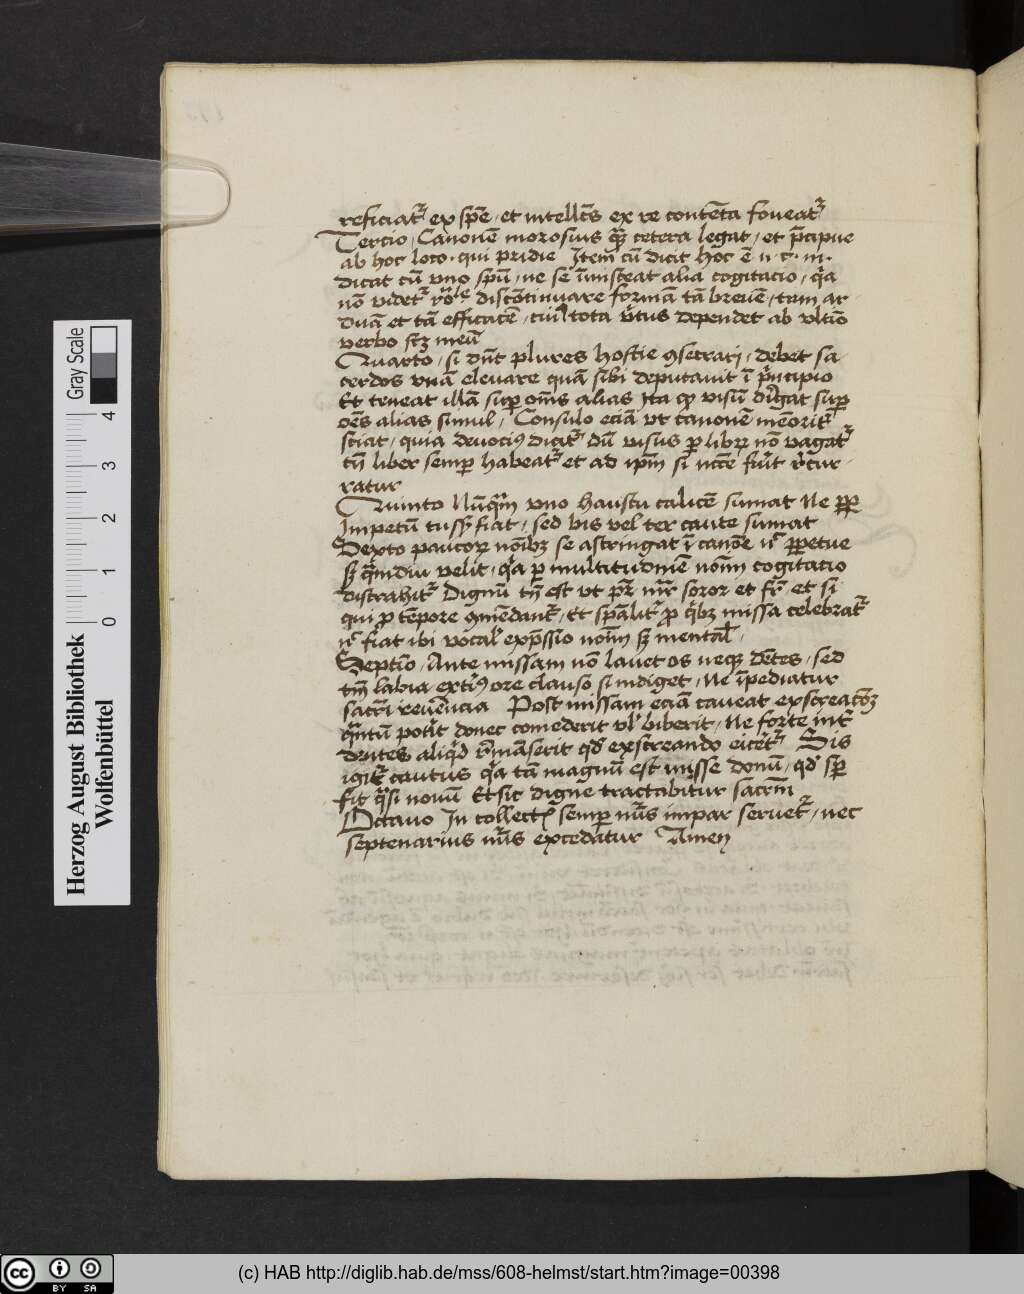 reficiatr ex spē et intellcūs ex re contēta foveatr
Tercio Canonē morosius quam cetera legat et prcipue
ab hoc loco qui pridie Item cū dicit hoc ē
dicat cū uno spū ne se īmisceat alia cogitacio qa
nō videtr discōtinuare formā tā brevē tam ar
duā et tā efficacē cui tota vtus dependet ab ultīo
verbo scz meū
Quarto si sūt plures hostie 9secrari debet sa
cerdos unā elevare quā sibi deputavit ī prncipio
Et teneat illā sup oms alias Ita qp visū dirigat sup
oēs alias simul Consulo eciā ut canonē
sciat quia devoci9 dicitr dū visus p libr nō vagatr
tn liber semp habeatr et ad ipm si ncce fuit rcur
ratur
Quinto Nūqm uno haustu calicē sumat Ne
Impetū tussis fiat sed bis vel ter caute sumat
Sexto paucor noībz se astringat ī canōe
sz qmdiu velit qa p multitudinē nom cogitacio
distrahitr Dignū tn est ut pr mr soror et fr et si
qui p tēpore 9mēdantr Et spālitr p qbz missa celebratr
fiat ibi vocal exprssio nom sz mental
Septīo Ante missam nō lavet os neqz dētes sed
tm labia exti9 ore clauso si indiget Ne īpediatur
sacrī reverēcia Post missam eciā caveat
qntū potit donec comederit vl biberit Ne forte int
dentes aliqd rmāserit qd exscreando eicetr Sis
igitr cautus qa tā magnū est misse donū qd sp
fit qsi novū Et sic digne tractabitur sacrm
Octavo In collect semp nūs impar servetr nec
septenarius nūs excedatur Amen
Herzog August Bibliothek
Wolfenbüttel
Gray Scale
0 1 2 3 4
(c) HAB http://diglib.hab.de/mss/608-helmst/start.htm?image=00398
cc BY SA